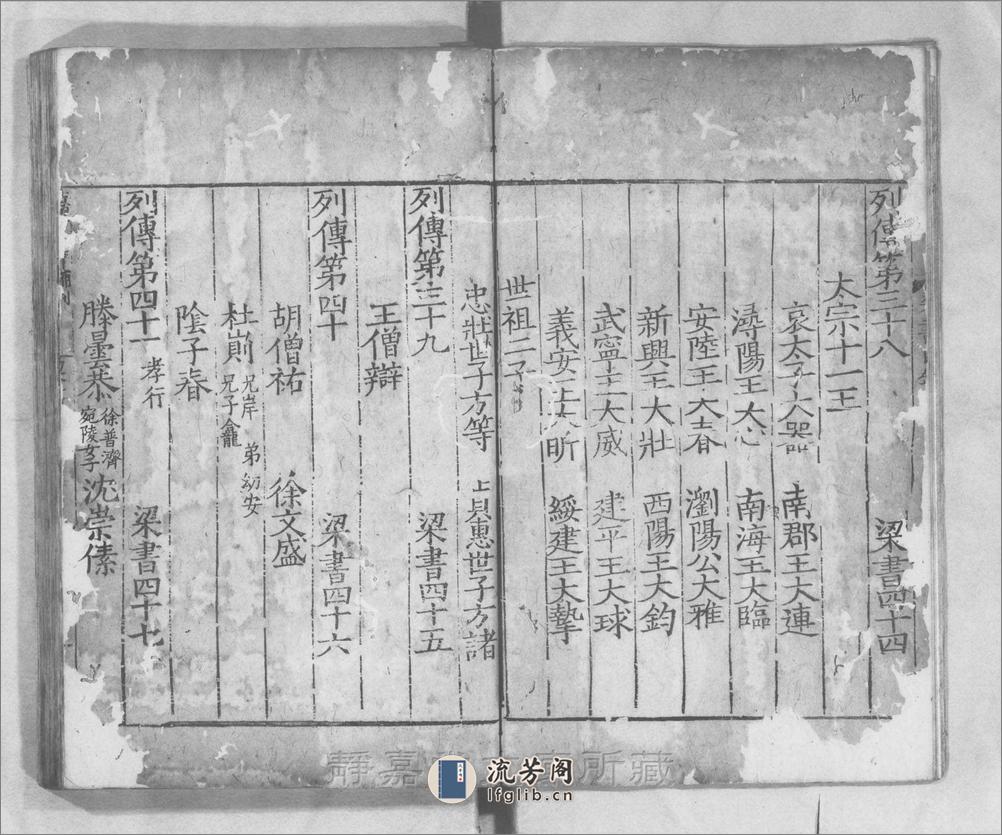 列傳第三十八 梁書四十四
太宗十一王
哀太子大器 南郡王大連
潯陽王大心 南海王大臨
安陸王大春 瀏陽公大雅
新興王大壯 西陽王大鈞
武寧王大威 建平王大球
義安王大昕 綏建王大摯
世祖二子
忠壯世子方等 貞惠世子方諸
列傳第三十九 梁書四十五
王僧辯
列傳第四十 梁書四十六
胡僧祐 徐文盛
杜崱 兄岸 弟幼安 兄子龕
陰子春
列傳第四十一 孝行 梁書四十七
滕曇恭 徐普濟 宛陵女子 沈崇傃
静嘉 所藏
流芳阁
lfglib.cn